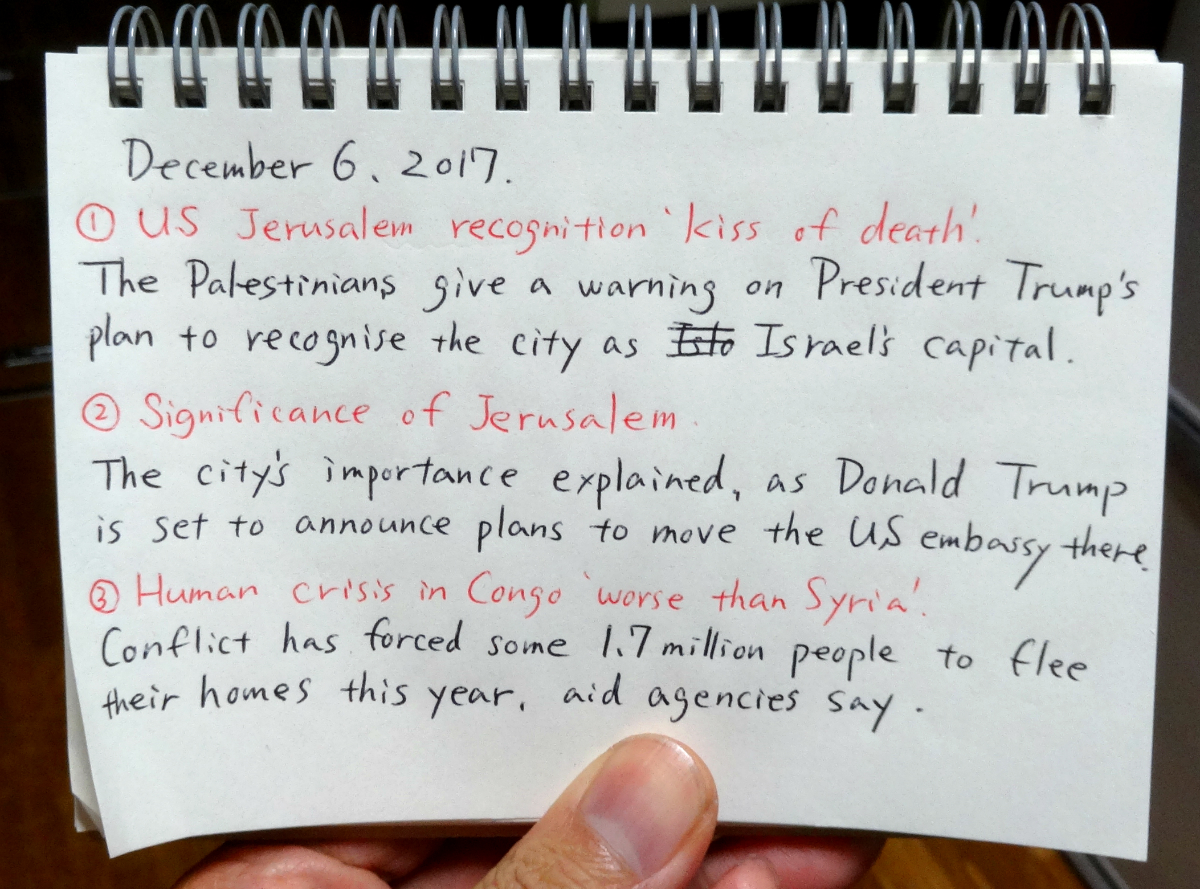 December 6, 2017.
① US Jerusalem recognition 'kiss of death'.
The Palestinians give a warning on President Trump's
plan to recognise the city as Israel's capital.
② Significance of Jerusalem.
The city's importance explained, as Donald Trump
is set to announce plans to move the US embassy there.
③ Human crisis in Congo 'worse than Syria'.
Conflict has forced some 1.7 million people to flee
their homes this year, aid agencies say.